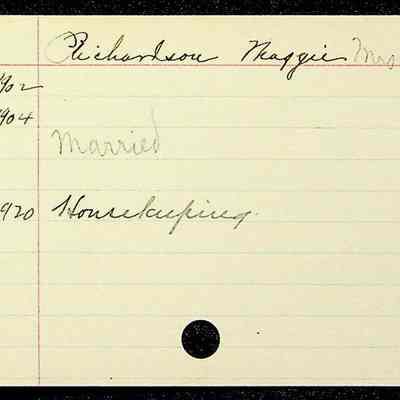 Richardson Maggie Mrs
902
904
Married
920 Housekeeping.